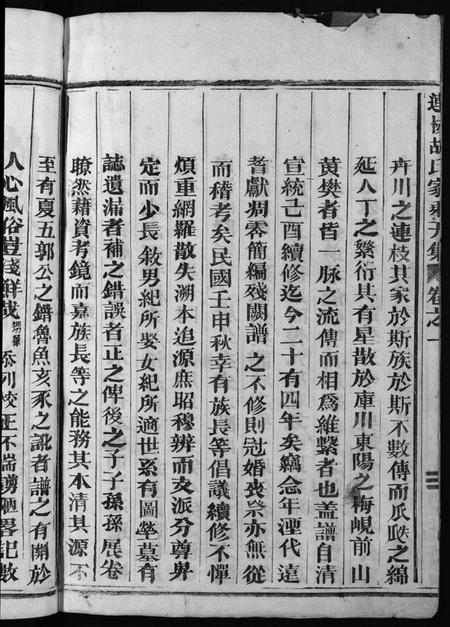 連枝胡氏家乘九集 卷之一
卉川之連枝其家於斯族於斯不數傳而瓜瓞之綿
延人丁之繁衍其有星散於庫川東陽之梅峴前山
黄樊者皆一脉之流傳而相爲維繫者也盖譜自清
宣統己酉續修迄今二十有四年矣竊念年湮代遠
耆獻凋零簡編殘闕譜之不修則冠婚喪祭亦無從
而稽考矣民國壬申秋幸有族長等倡議續修不憚
煩重網羅散失溯本追源庶昭穆辨而支派分尊卑
定而少長敘男紀所娶女紀所適世系有圖塋墓有
誌遺漏者補之錯誤者正之俾後之子子孫孫展卷
瞭然藉資考鏡而嘉族長等之能務其本清其源不
至有夏五郭公之錯魯魚亥豕之訛者譜之有關於
人心風俗豈淺鮮哉翙羣忝列校正不揣谫陋畧記數